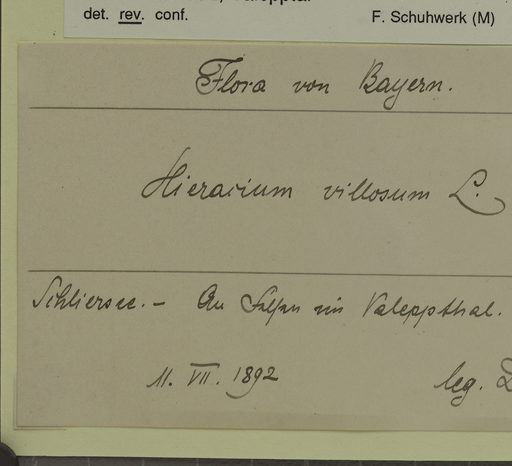 det. rev. conf. F. Schuhwerk (M)
Flora von Bayern.
Hieracium villosum L.
Schliersee. – An Felsen im Valeppthal.
11. VII. 1892 leg.